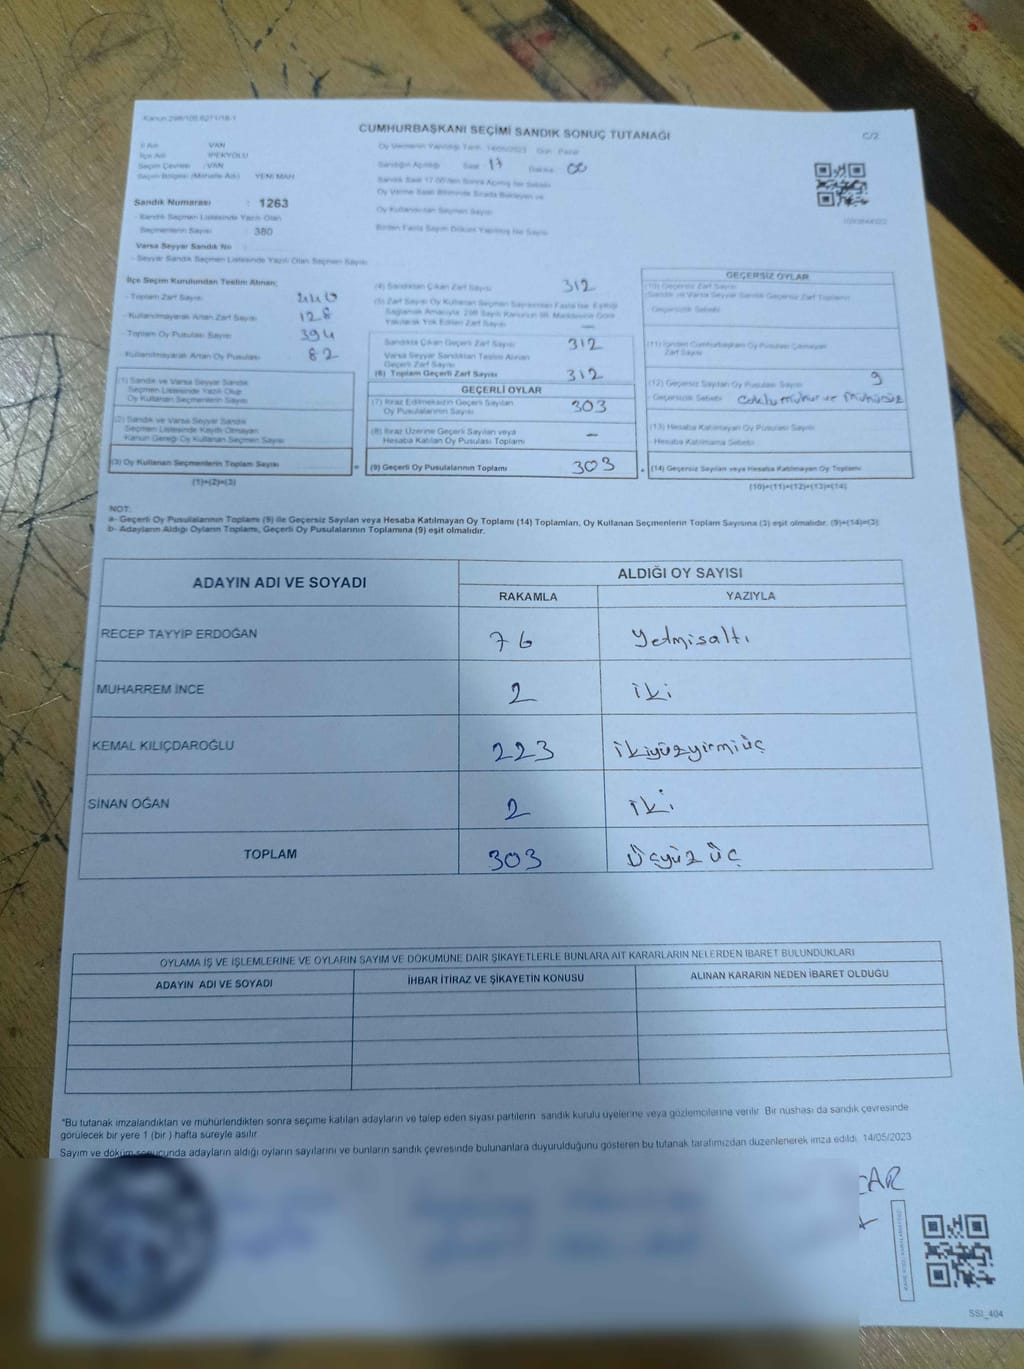 Kanun 298/105 6271/18-1
CUMHURBAŞKANI SEÇİMİ SANDIK SONUÇ TUTANAĞI
C/2
İl Adı VAN
İlçe Adı İPEKYOLU
Seçim Çevresi : VAN
Seçim Bölgesi (Mahalle Adı) YENİ MAH
Sandık Numarası : 1263
Sandık Seçmen Listesinde Yazılı Olan
Seçmenlerin Sayısı 380
Varsa Seyyar Sandık No
- Seyyar Sandık Seçmen Listesinde Yazılı Olan Seçmen Sayısı
Oy Vermenin Yapıldığı Tarih 14/05/2023 Gün Pazar
Sandığın Açıldığı Saat 17 Dakika 00
Sandık Saat 17.00'den Sonra Açılmış İse Sebebi
Oy Verme Saati Bitiminde Sırada Bekleyen ve
Oy Kullandırılan Seçmen Sayısı
Birden Fazla Sayım Döküm Yapılmış İse Sayısı
İlçe Seçim Kurulundan Teslim Alınan;
- Toplam Zarf Sayısı 440
- Kullanılmayarak Artan Zarf Sayısı 128
- Toplam Oy Pusulası Sayısı 394
- Kullanılmayarak Artan Oy Pusulası 82
(1) Sandık ve Varsa Seyyar Sandık
Seçmen Listesinde Yazılı Olup
Oy Kullanan Seçmenlerin Sayısı
(2) Sandık ve Varsa Seyyar Sandık
Seçmen Listesinde Kayıtlı Olmayan
Kanun Gereği Oy Kullanan Seçmen Sayısı
(3) Oy Kullanan Seçmenlerin Toplam Sayısı
(1)+(2)=(3)
(4) Sandıktan Çıkan Zarf Sayısı 312
(5) Zarf Sayısı Oy Kullanan Seçmen Sayısından Fazla İse, Eşitliği
Sağlamak Amacıyla 298 Sayılı Kanunun 98. Maddesine Göre
Yakılarak Yok Edilen Zarf Sayısı —
Sandıkta Çıkan Geçerli Zarf Sayısı 312
Varsa Seyyar Sandıktan Teslim Alınan
Geçerli Zarf Sayısı
(6) Toplam Geçerli Zarf Sayısı 312
GEÇERLİ OYLAR
(7) İtiraz Edilmeksizin Geçerli Sayılan
Oy Pusulalarının Sayısı 303
(8) İtiraz Üzerine Geçerli Sayılan veya
Hesaba Katılan Oy Pusulası Toplamı —
(9) Geçerli Oy Pusulalarının Toplamı 303
GEÇERSİZ OYLAR
(10) Geçersiz Zarf Sayısı
Sandık ve Varsa Seyyar Sandık Geçersiz Zarf Toplamı
Geçersizlik Sebebi
(11) İçinden Cumhurbaşkanı Oy Pusulası Çıkmayan
Zarf Sayısı
(12) Geçersiz Sayılan Oy Pusulası Sayısı 9
Geçersizlik Sebebi mühür ve mühürsüz
(13) Hesaba Katılmayan Oy Pusulası Sayısı
Hesaba Katılmama Sebebi
(14) Geçersiz Sayılan veya Hesaba Katılmayan Oy Toplamı
(10)+(11)+(12)+(13)=(14)
NOT:
a- Geçerli Oy Pusulalarının Toplamı (9) ile Geçersiz Sayılan veya Hesaba Katılmayan Oy Toplamı (14) Toplamları, Oy Kullanan Seçmenlerin Toplam Sayısına (3) eşit olmalıdır. (9)+(14)=(3)
b- Adayların Aldığı Oyların Toplamı, Geçerli Oy Pusulalarının Toplamına (9) eşit olmalıdır.
ADAYIN ADI VE SOYADI
ALDIĞI OY SAYISI
RAKAMLA YAZIYLA
RECEP TAYYİP ERDOĞAN 76 Yetmişaltı
MUHARREM İNCE 2 iki
KEMAL KILIÇDAROĞLU 223 ikiyüzyirmiüç
SİNAN OĞAN 2 iki
TOPLAM 303 Üçyüz üç
OYLAMA İŞ VE İŞLEMLERİNE VE OYLARIN SAYIM VE DÖKÜMÜNE DAİR ŞİKAYETLERLE BUNLARA AİT KARARLARIN NELERDEN İBARET BULUNDUKLARI
ADAYIN ADI VE SOYADI İHBAR İTİRAZ VE ŞİKAYETİN KONUSU ALINAN KARARIN NEDEN İBARET OLDUĞU
*Bu tutanak imzalandıktan ve mühürlendikten sonra seçime katılan adayların ve talep eden siyasi partilerin sandık kurulu üyelerine veya gözlemcilerine verilir. Bir nüshası da sandık çevresinde
görülecek bir yere 1 (bir) hafta süreyle asılır.
Sayım ve döküm sonucunda adayların aldığı oyların sayılarını ve bunların sandık çevresinde bulunanlara duyurulduğunu gösteren bu tutanak tarafımızdan düzenlenerek imza edildi. 14/05/2023
CAR
SSI_404